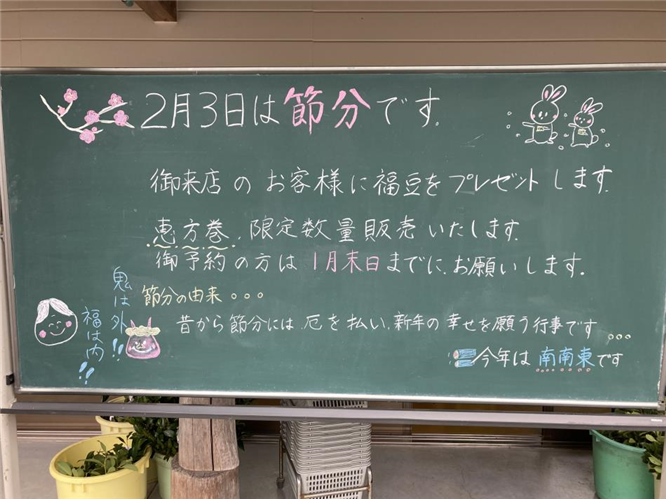 2月3日は節分です.
御来店のお客様に福豆をプレゼントします.
恵方巻.限定数量販売いたします.
御予約の方は1月末日までに、お願いします.
鬼は外!!
福は内!!
節分の由来。。。
昔から節分には厄を払い、新年の幸せを願う行事です。。。
今年は南南東です